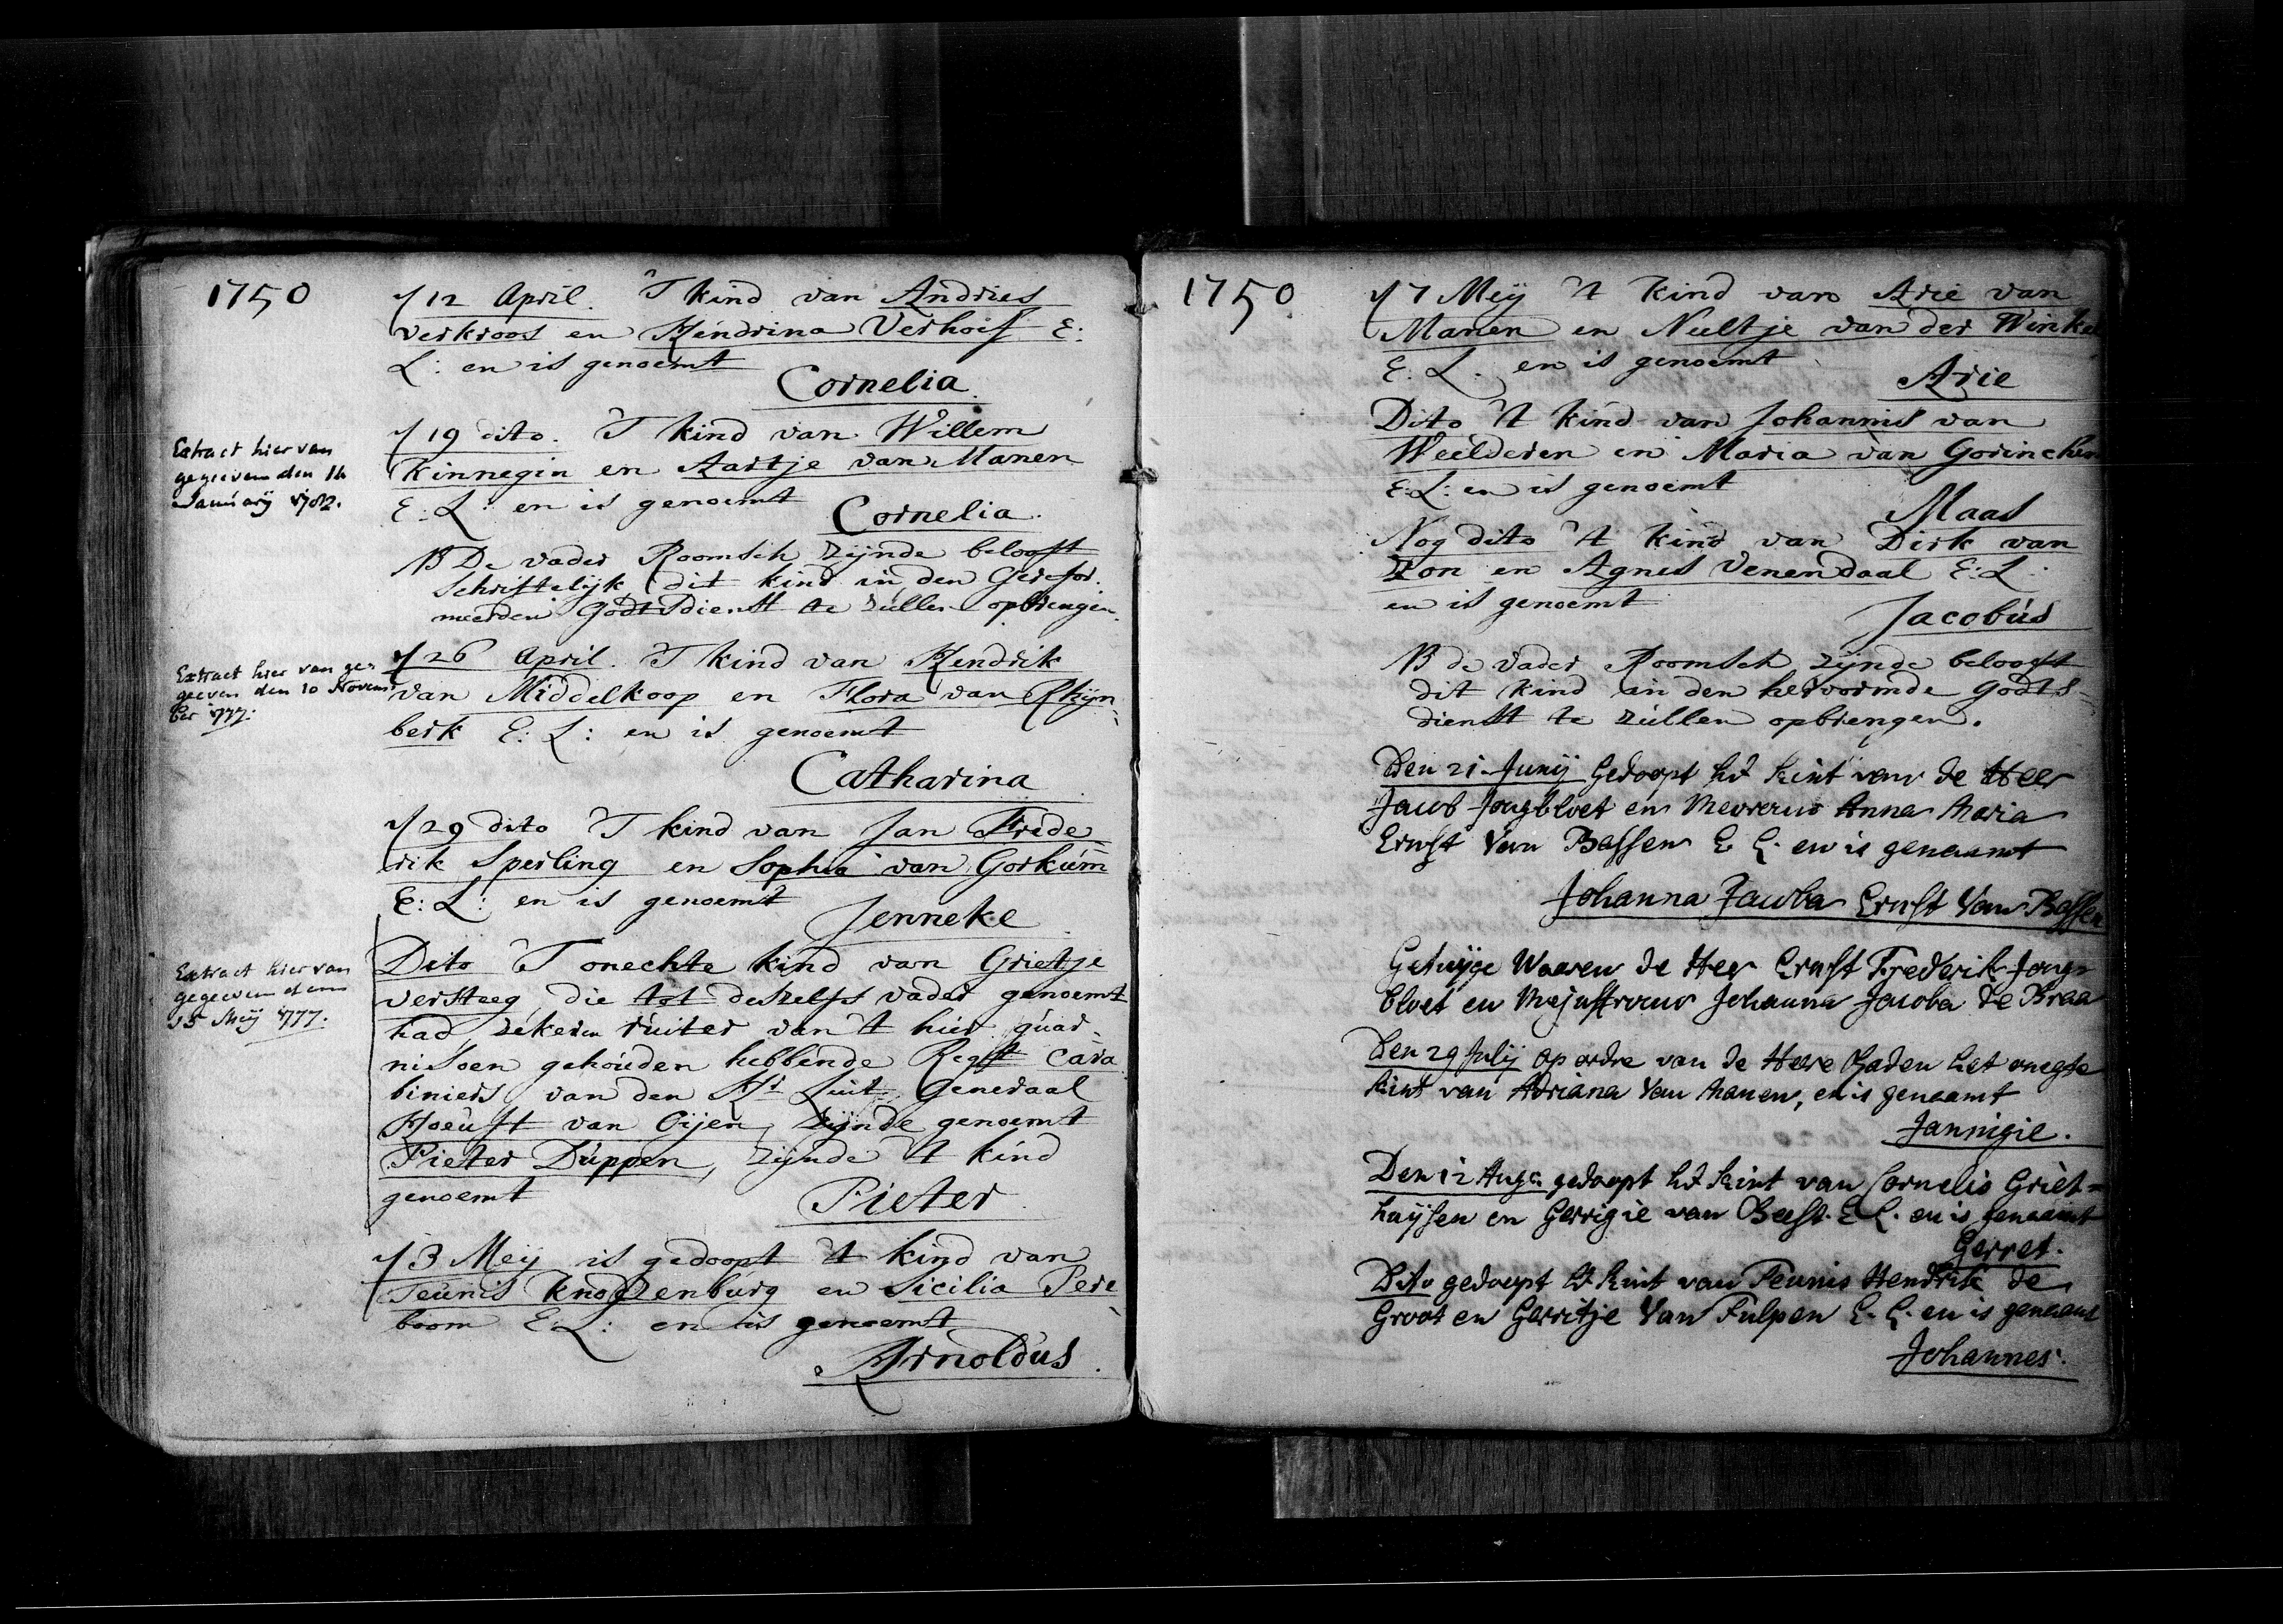 1750
12 April. 'T kind van Andries
Verkroos en Hendrina Verhoef E:
L: en is genoemt
Cornelia
Extract hier van
gegeeven den 16
January 1782.
19 dito. 'T kind van Willem
Kinnegin en Aartje van Manen
E: L: en is genoemt
Cornelia.
NB De vader Roomsch zijnde belooft
Schriftelijk dit kind in den Gerefor.
meerden Godtsdienst te zullen opbrengen.
Extract hier van ge=
geeven den 10 Novem
ber 1777:
26 April. 'T kind van Hendrik
van Middelkoop en Flora van Rhijn=
berk E: L: en is genoemt
Catharina
29 dito 'T kind van Jan Frede
rik Sperling en Sophia van Gorkum
E: L: en is genoemt
Jenneke
Extract hier van
gegeeven den
15 Meij 1777.
Dito 'T onechte kind van Grietje
versteeg, die tot deszelfs vader genoemt
had zekeren ruiter van 't hier guar-
nisoen gehouden hebbende Regt Cara
biniers van den Hr Luit. Generaal
Hoeuft van Oijen, zijnde genoemt
Pieter Duppen, zijnde 't kind
genoemt
Pieter
3 Meij is gedoopt 't kind van
Teunis Knoppenburg en Sicilia Pere
boom E: L: en is genoemt
Arnoldus.
1750
7 Meij 't kind van Arie van
Manen en Neeltje van der Winkel
E. L. en is genoemt
Arie
Dito 't kind van Johannis van
Weelderen en Maria van Gorinchem
E: L: en is genoemt
Maas
Nog dito 't kind van Dirk van
Zon en Agnes Venendaal E: L:
en is genoemt
Jacobus
NB de vader Roomsch zijnde belooft
dit kind in den hervormde godts=
dienst te zullen opbrengen.
Den 21 Junij Gedoopt het kint van de Heer
Jacob Jongbloet en Mevrouw Anna Maria
Ernst Van Bassen E L. en is genaamt
Johanna Jacoba Ernst Van Bassen
Getuijge Waaren de Heer Ernst Frederik Jong=
bloet en Mejuffrouw Johanna Jacoba de Braa
Den 29 Julij op ordre van de Heere Raden het onegte
kint van Adriana Van Manen, en is genaamt
Jannigie.
Den 12 Aug: gedoopt het kint van Cornelis Griet=
huijsen en Gerrigie van Beest. E L. en is genaamt
Gerret.
Dito gedoopt het kint van Teunis Hendrik de
Groot en Gerritje Van Tulpen E. L. en is genaamt
Johannes.